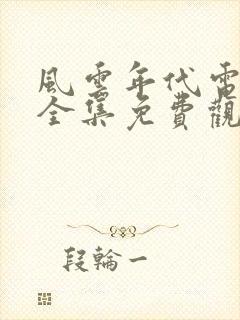 風雲年代電
全集免費觀
段輪一